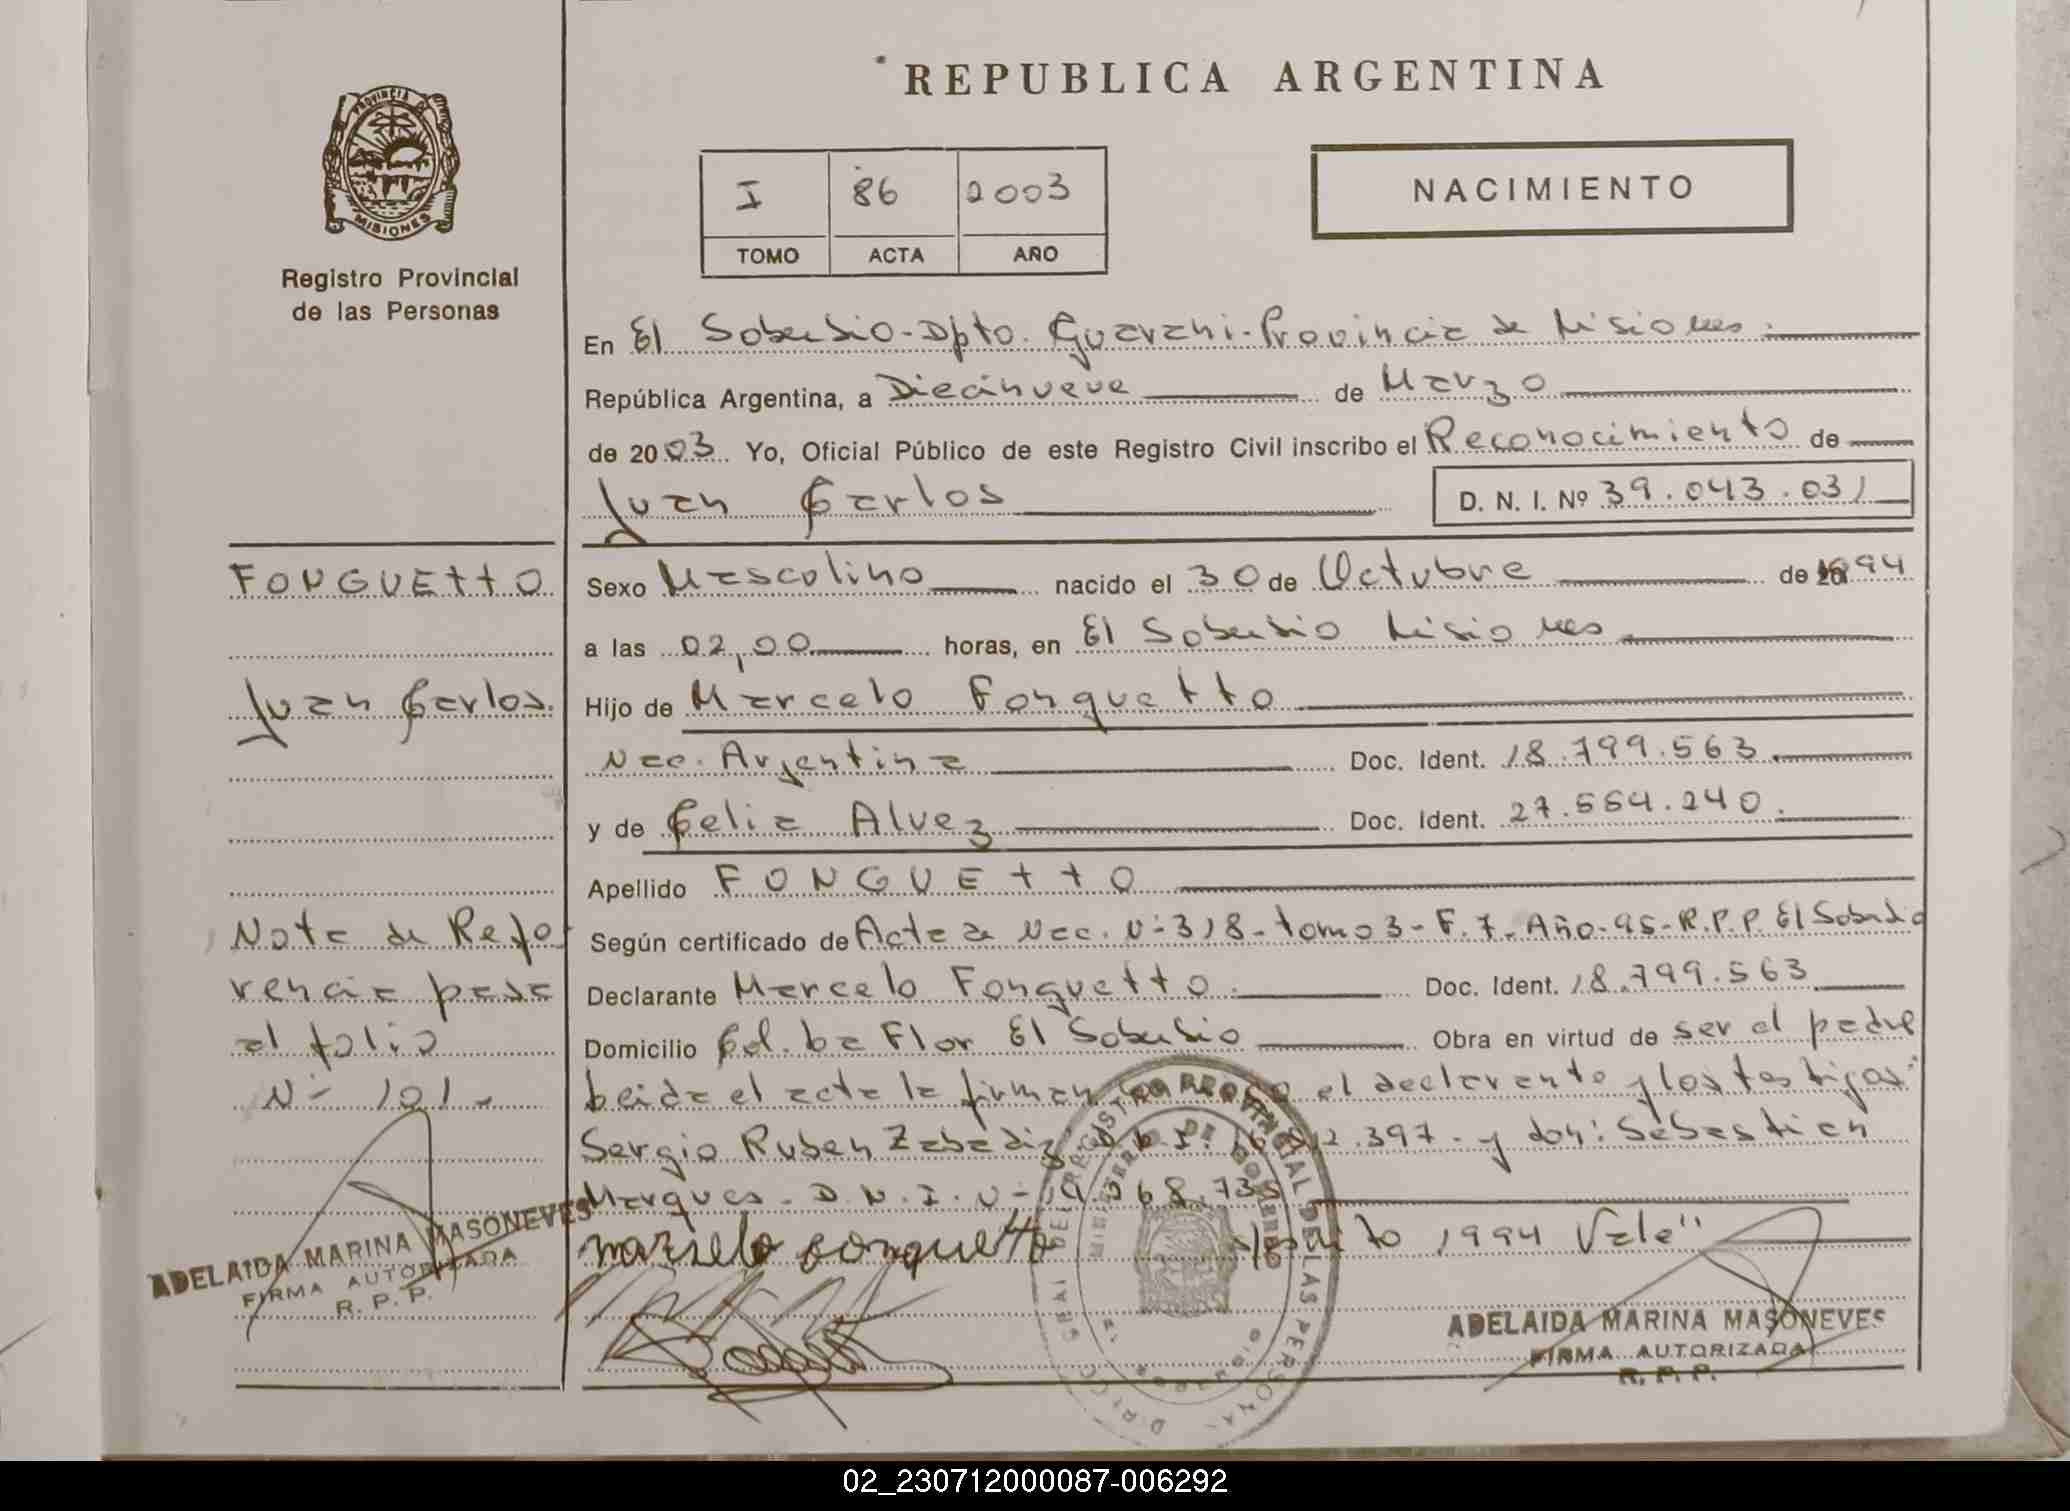 REPUBLICA ARGENTINA
PROVINCIA DE
MISIONES
Registro Provincial
de las Personas
I 86 2003
TOMO ACTA AÑO
NACIMIENTO
En El Soberbio-Dpto. Guarani-Provincia de Misiones.
República Argentina, a Diecinueve de Marzo
de 2003 Yo, Oficial Público de este Registro Civil inscribo el Reconocimiento de
Juan Carlos D. N. I. Nº 39.043.031
FONGUETTO
Sexo Masculino nacido el 30 de Octubre de 1994
a las 02,00 horas, en El Soberbio Misiones
Juan Carlos.
Hijo de Marcelo Fonguetto
Nac. Argentina Doc. Ident. 18.799.563
y de Celia Alvez Doc. Ident. 27.554.240.
Apellido FONGUETTO
Nota de Refe
rencia pasa
al folio
Nº 101.
Según certificado de Acta de Nac. Nº 318-tomo 3-F.7-Año-95-R.P.P. El Soberbio
Declarante Marcelo Fonguetto. Doc. Ident. 18.799.563
Domicilio Col. La Flor El Soberbio Obra en virtud de ser el padre
Leida el acta la firman el declarante y los testigos:
Sergio Ruben .397. y don: Sebastian
Marques. D.N.I. Nº
1994 Vale"
ADELAIDA MARINA MASONEVES
FIRMA AUTORIZADA
R. P. P.
ADELAIDA MARINA MASONEVES
FIRMA AUTORIZADA
R. P. P.
02_230712000087-006292